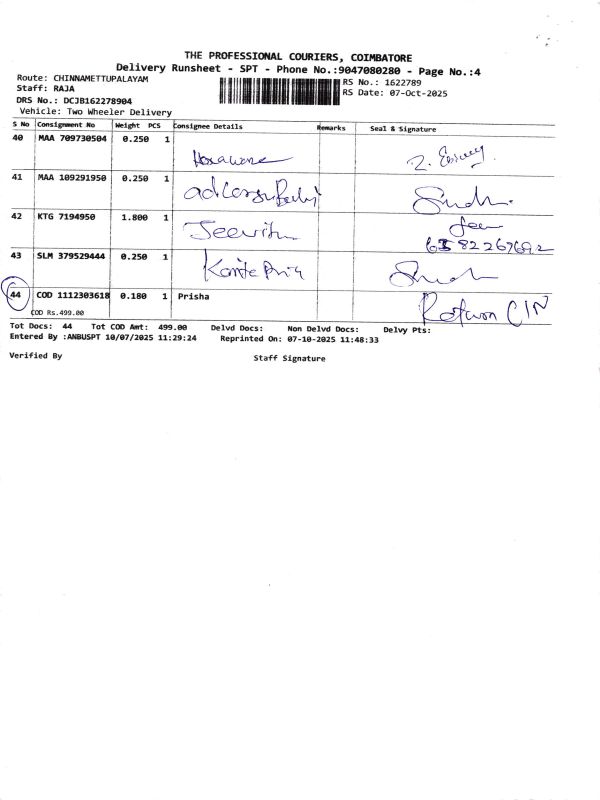 THE PROFESSIONAL COURIERS, COIMBATORE
Delivery Runsheet - SPT - Phone No.:9047080280 - Page No.:4
Route: CHINNAMETTUPALAYAM
RS No.: 1622789
Staff: RAJA
RS Date: 07-Oct-2025
DRS No.: DCJB162278904
Vehicle: Two Wheeler Delivery
S No Consignment No Weight PCS Consignee Details Remarks Seal & Signature
40 MAA 709730504 0.250 1
41 MAA 109291950 0.250 1
42 KTG 7194950 1.800 1 Jeevith
43 SLM 379529444 0.250 1
44 COD 1112303618 0.180 1 Prisha
COD Rs.499.00
Tot Docs: 44 Tot COD Amt: 499.00 Delvd Docs: Non Delvd Docs: Delvy Pts:
Entered By :ANBUSPT 10/07/2025 11:29:24 Reprinted On: 07-10-2025 11:48:33
Verified By Staff Signature